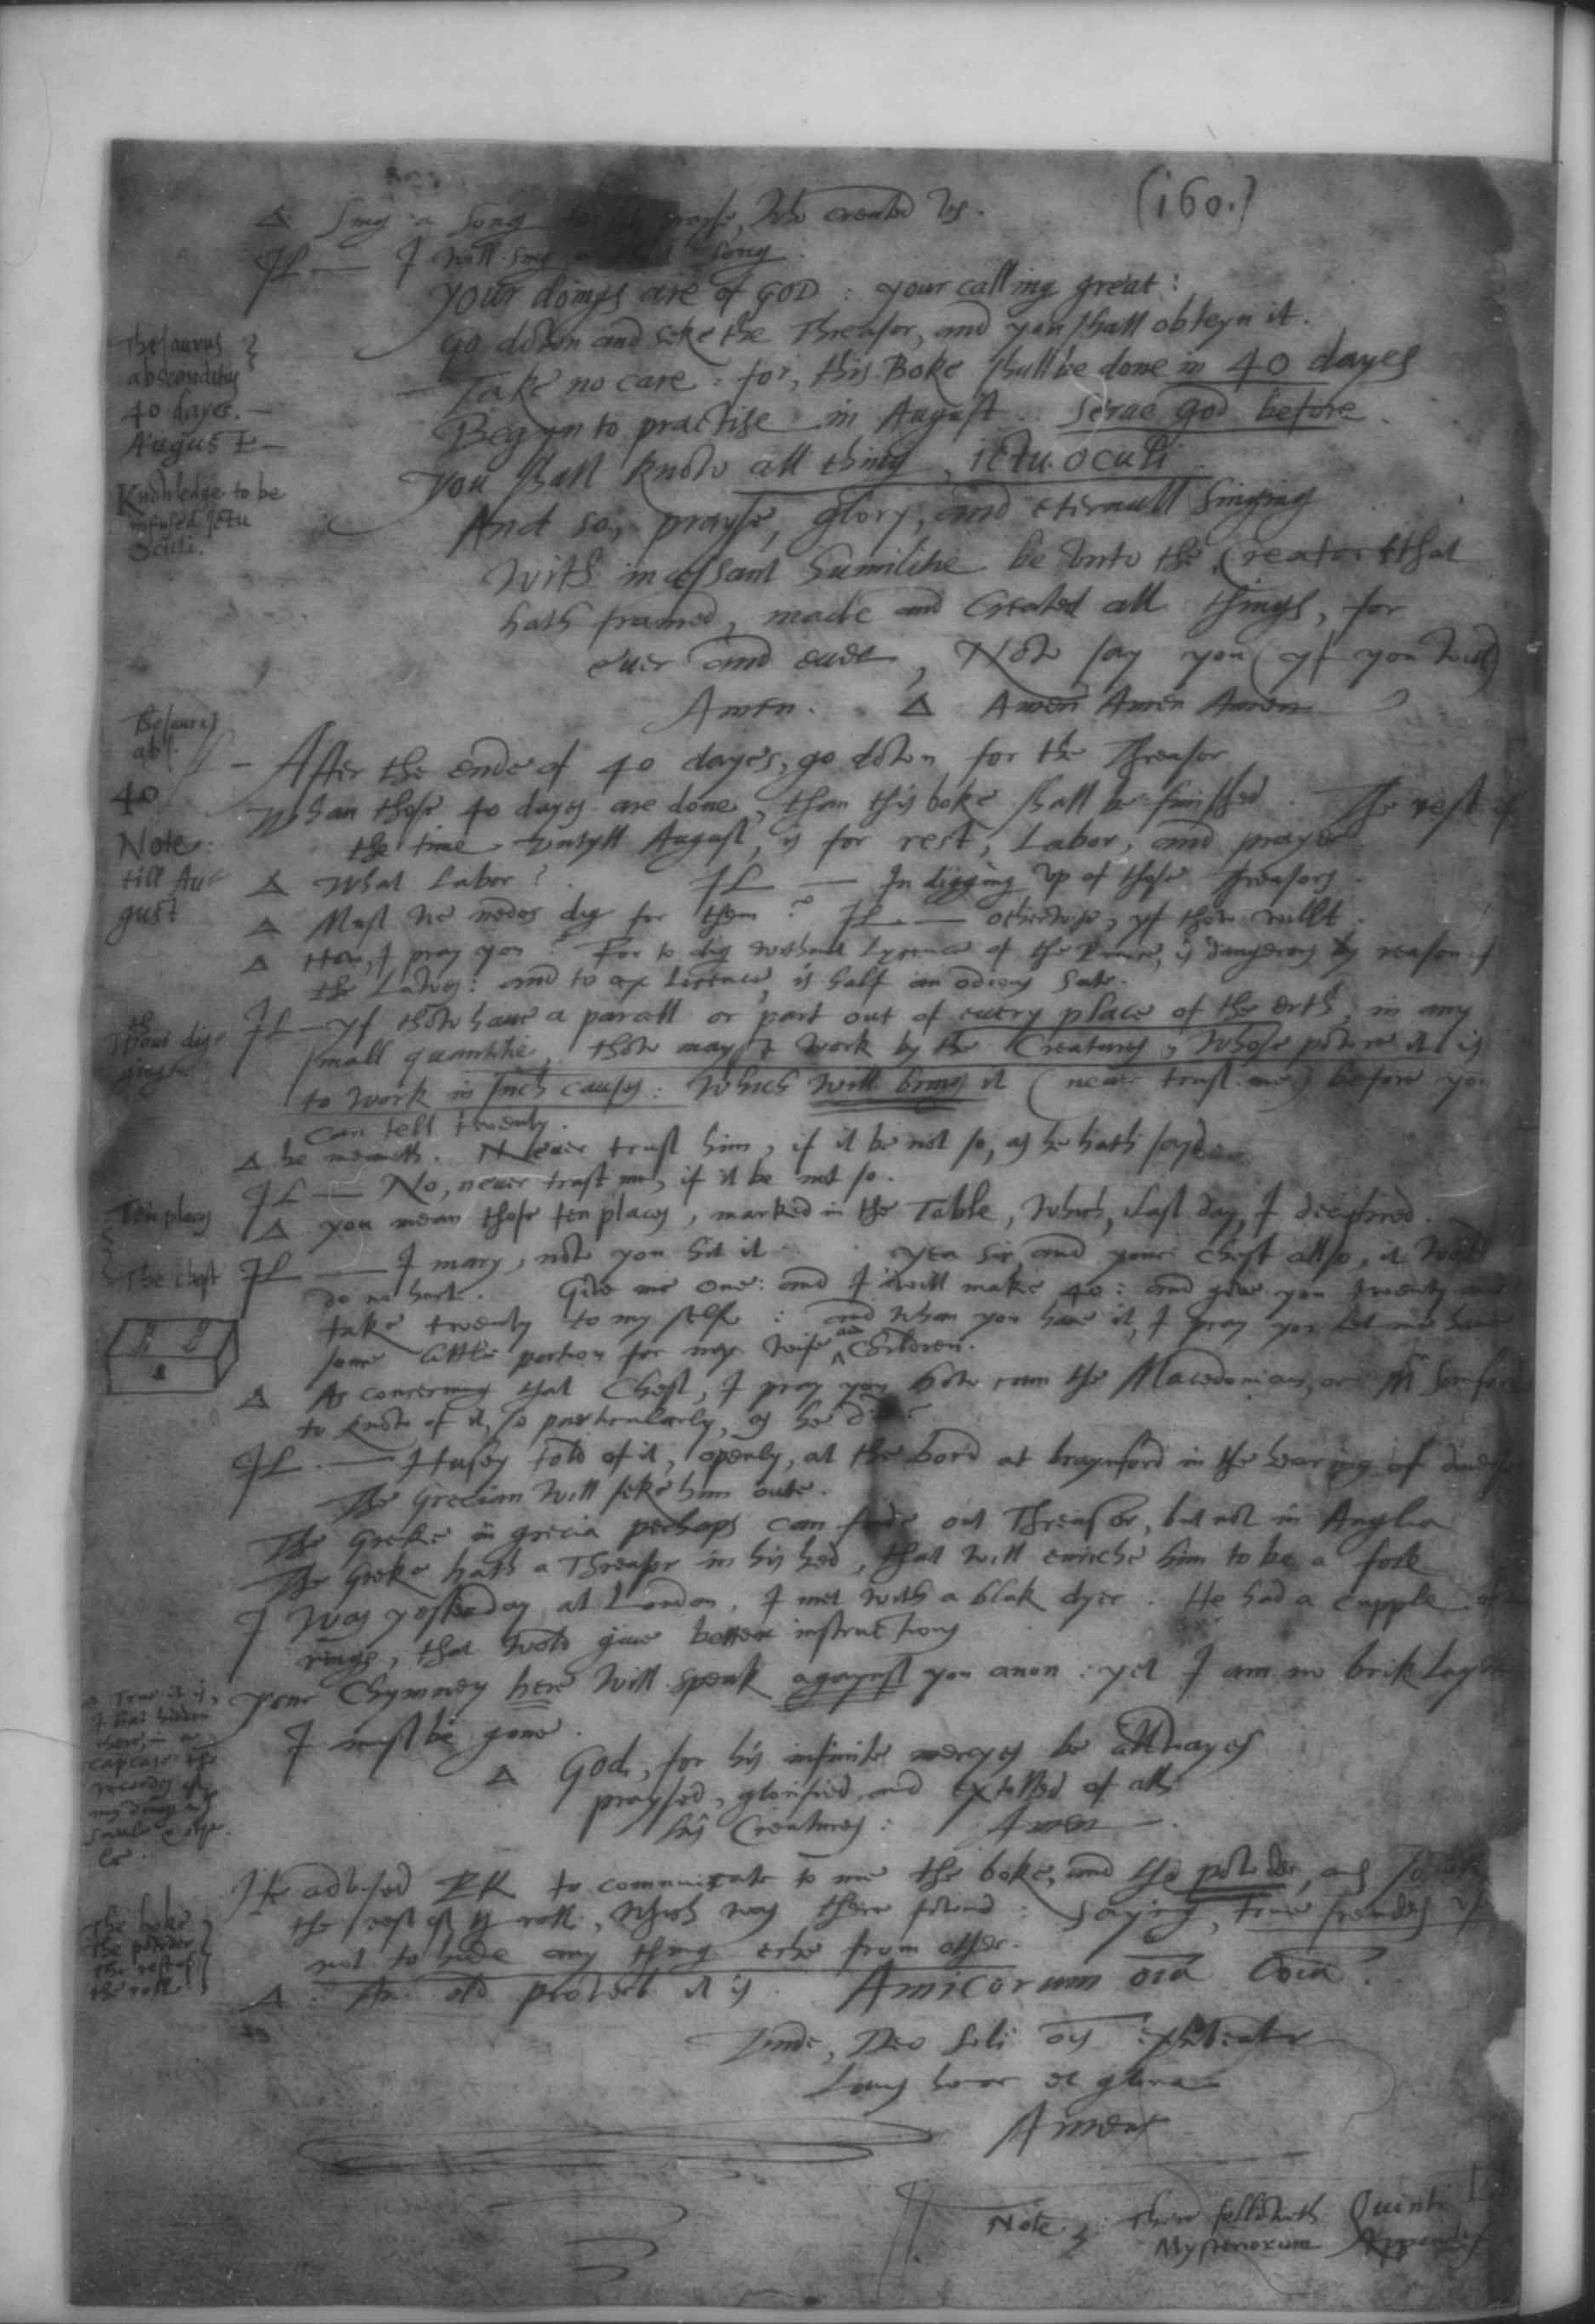 (160.)
Δ Sing a song to his prayse, who created us.
IL — I will sing a short song.
your doings are of GOD: your calling great:
Go down and seke the Threasor, and you shall obteyn it.
Take no care: for, this Boke shall be done in 40 dayes
Begyn to practise in August. Serue god before.
You shall know all thing, ictu oculi
And so, prayse, glory, and eternall singing
with incessant humilitie be unto the Creator that
hath framed, made and Created all things, for
euer and euer, Now say you (yf you will)
Amen. Δ Amen Amen Amen
Thesaurus
absconditus
40 dayes.—
August—
Knowledge to be
infused Ictu
Oculi.
— After the ende of 40 dayes, go down for the Threasor
Whan those 40 dayes are done, than this boke shall be finished. The rest of
the time untyll August, is for rest, Labor, and prayer
Δ What Labor? IL — In digging up of those Threasors.
Δ Must we nedes dig for them? IL — otherwise, yf thow willt.
Δ How, I pray you? For to dig without Lycence of the Prince, is dangerous by reason of
the Lawes: and to ax licence, is half an odious sute.
IL — yf thow haue a parcell or part out of euery place of the erth, in any
small quantitie, thow mayst work by the Creatures, whose powre it is
to work in such causes: Which will bring it (neuer trust me) before you
can tell twenty.
Δ he meaneth. Neuer trust him, if it be not so, as he hath sayd.
IL — No, neuer trust me, if it be not so.
Δ you mean those ten places, marked in the Table, which, last day, I deciphred.
IL — I mary, now you hit it. yea sir and your chest allso, it wold
do no hurt. Give me one: and I will make 40: and give you twenty and
take twenty to my self: and whan you haue it, I pray you let me haue
some little portion for my wife and Children.
Thesaurus
abs.
40
Note:
till Au-
gust
Ten places
The chest
Δ As concerning that Chest, I pray you how cam the Macedonian, or Mr Sanford
to know of it, so particularly, as he did?
IL — Husey told of it, openly, at the bord at braynford in the hearing of diuerse
The Grecian will seke him oute.
The Greke in grecia perhaps can finde out Threasor, but not in Anglia
The Greke hath a Threasor in his hed, that will enriche him to be a fole
I was yesterday at London, I met with a blak dyer. He had a cupple of
rings, that wold giue better instructions
Your Chymney here will speak agaynst you anon: yet I am no brik layer
I must be gone.
Δ God, for his infinite mercyes be allwayes
praysed, glorified, and extolled of all
his Creatures: Amen.
Δ True it is,
I had hidden
there, in a
capcase the
recordes of
my doings with
Saul &
He advised EK to communicate to me the boke, and the powder, and so all
the rest of the roll, which was there fownd: saying, true frendes use
not to hide any thing eche from other.
Δ. An old proverb it is. Amicorum oĩa Coĩa.
Unde, Deo soli oĩs exhibeatur
Laus honor et gloria
Amen
The boke
the powder
the rest of
the roll
Note: There followith Quinti
Mysteriorum Appendix